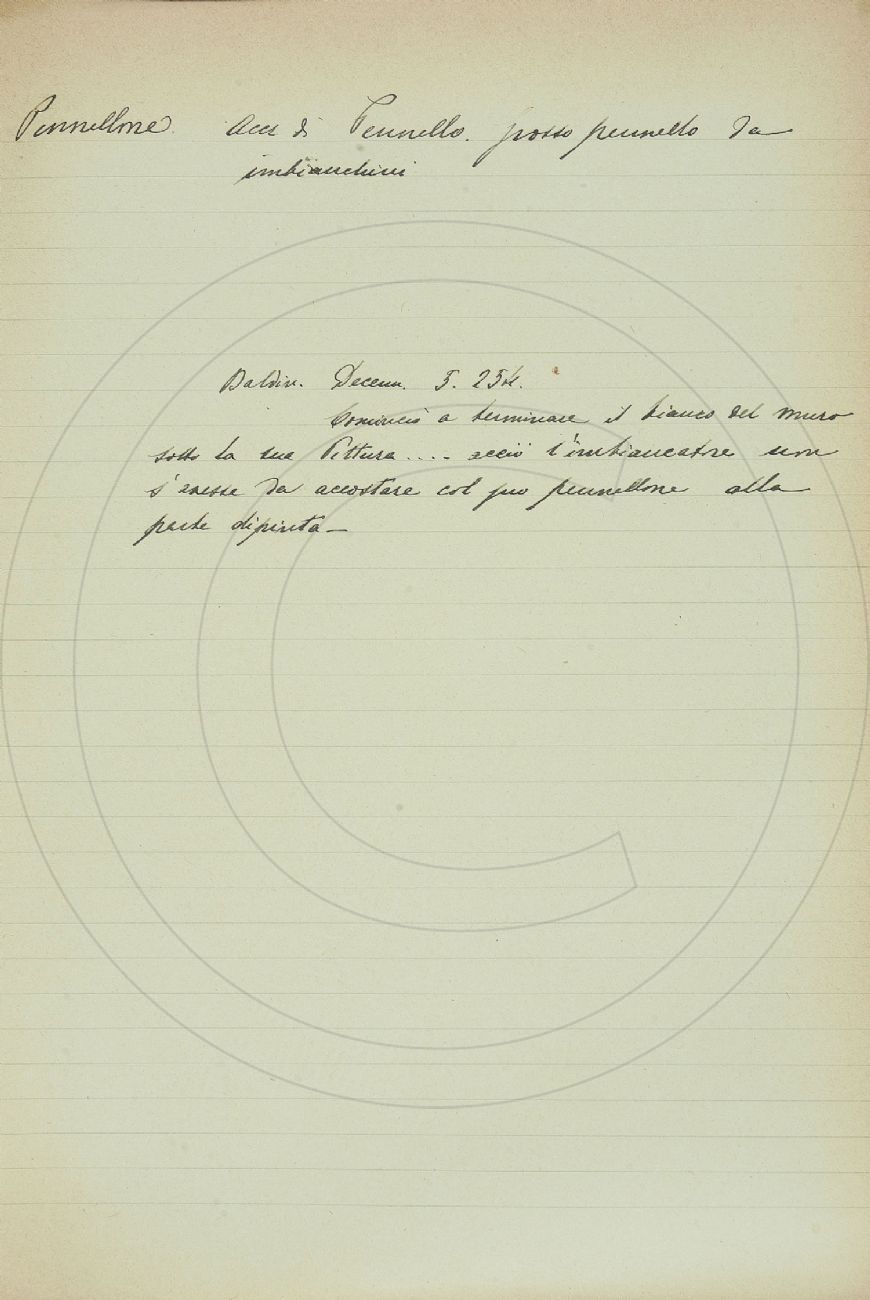 Pennellone. Accr di Pennello. grosso pennello da
imbianchini
Baldin. Decenn. 5. 254.
Cominciò a terminare il bianco del muro
sotto la sua Pittura .... acciò l'imbiancatore non
s'avesse da accostare col suo pennellone alla
parte dipinta —